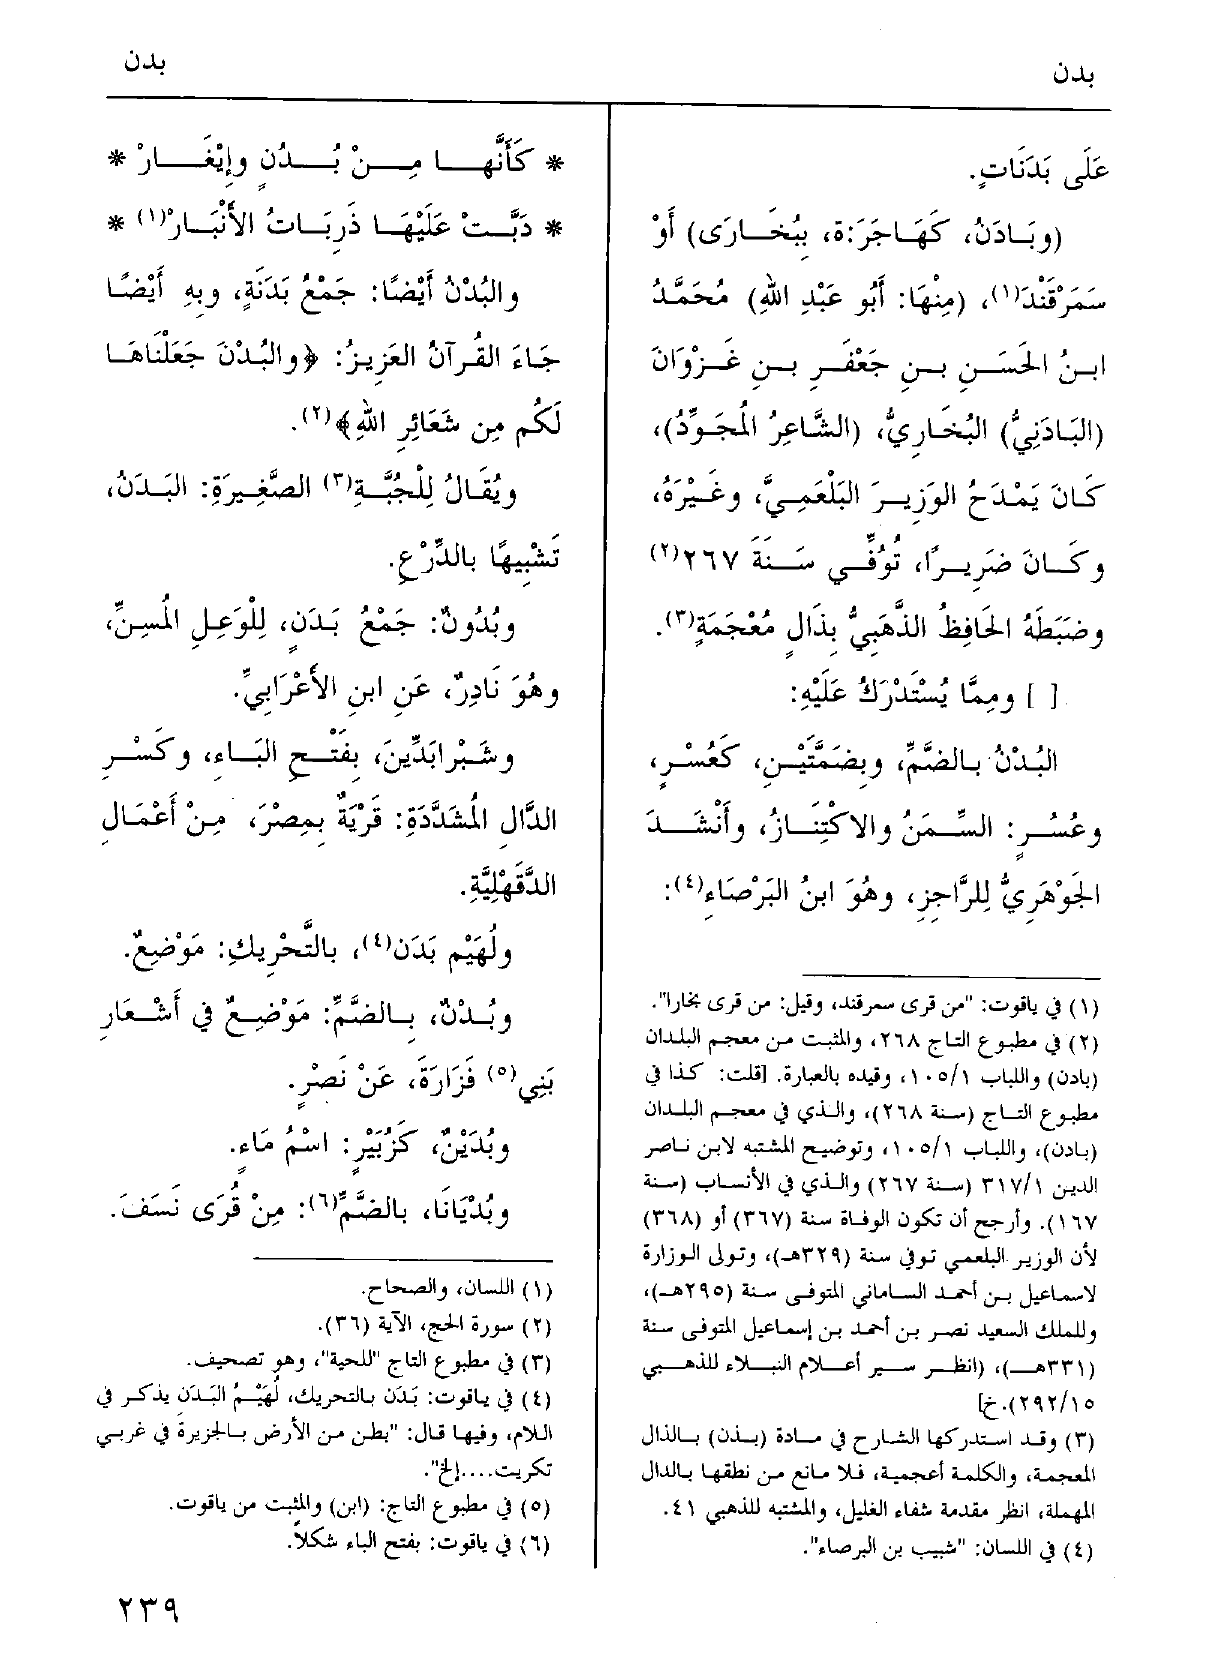 بدن
بدن
عَلَى بَدَنَاتٍ.
(وبَادَنُ، كَهَاجَرَ:ة، بِبُخَارَى) أَوْ
سَمَرْقَنْدَ(١)، (مِنْهَا: أَبُو عَبْدِ اللهِ) مُحَمَّدُ
ابنُ الحَسَنِ بنِ جَعْفَرِ بنِ غَزْوَانَ
(البَادَنِيُّ) البُخَارِيُّ، (الشَّاعِرُ المُجَوِّدُ)،
كَانَ يَمْدَحُ الوَزِيرَ البَلْعَمِيَّ، وغَيْرَهُ،
وكَانَ ضَرِيرًا، تُوُفِّي سَنَةَ ٢٦٧(٢)
وضَبَطَهُ الحَافِظُ الذَّهَبِيُّ بذَالٍ مُعْجَمَةٍ(٣).
[ ] ومِمَّا يُسْتَدْرَكُ عَلَيْهِ:
البُدْنُ بالضَّمِّ، وبِضَمَّتَيْنِ، كَعُسْرٍ،
وعُسُرٍ: السِّمَنُ والاكْتِنَازُ، وأَنْشَدَ
الجَوْهَرِيُّ لِلرَّاجِزِ، وهُوَ ابنُ البَرْصَاءِ(٤):
(١) في ياقوت: "من قرى سمرقند، وقيل: من قرى بخارا".
(٢) في مطبوع التاج ٢٦٨، والمثبت من معجم البلدان
(بادن) واللباب ١٠٥/١، وقيده بالعبارة. [قلت: كذا في
مطبوع التاج (سنة ٢٦٨)، والذي في معجم البلدان
(بادن)، واللباب ١٠٥/١، وتوضيح المشتبه لابن ناصر
الدين ٣١٧/١ (سنة ٢٦٧) والذي في الأنساب (سنة
١٦٧). وأرجح أن تكون الوفاة سنة (٣٦٧) أو (٣٦٨)
لأن الوزير البلعمي توفي سنة (٣٢٩هـ)، وتولى الوزارة
لاسماعيل بن أحمد الساماني المتوفى سنة (٢٩٥هـ)،
وللملك السعيد نصر بن أحمد بن إسماعيل المتوفى سنة
(٣٣١هـ)، (انظر سير أعلام النبلاء للذهبي
٢٩٢/١٥).خ]
(٣) وقد استدركها الشارح في مادة (بذن) بالذال
المعجمة، والكلمة أعجمية، فلا مانع من نطقها بالدال
المهملة، انظر مقدمة شفاء الغليل، والمشتبه للذهبي ٤١.
(٤) في اللسان: "شبيب بن البرصاء".
* كَأَنَّهَا مِنْ بُدُنٍ وإِيْغَارْ *
* دَبَّتْ عَلَيْهَا ذَرِبَاتُ الأَنْبَارْ(١) *
والبُدْنُ أَيْضًا: جَمْعُ بَدَنَةٍ، وبِهِ أَيْضًا
جَاءَ القُرآنُ العَزِيزُ: ﴿والبُدْنَ جَعَلْنَاهَا
لَكُم مِن شَعَائِرِ اللهِ﴾(٢).
ويُقَالُ لِلْجُبَّةِ(٣) الصَّغِيرَةِ: البَدَنُ،
تَشْبِيهًا بالدِّرْعِ.
وبُدُونٌ: جَمْعُ بَدَنٍ، لِلْوَعِلِ المُسِنِّ،
وهُوَ نَادِرٌ، عَنِ ابنِ الأَعْرَابِيِّ.
وشَبْرابَدِّينَ، بِفَتْحِ البَاءِ، وكَسْرِ
الدَّالِ المُشَدَّدَةِ: قَرْيَةٌ بمِصْرَ، مِنْ أَعْمَالِ
الدَّقَهْلِيَّةِ.
ولُهَيْم بَدَن(٤)، بالتَّحْرِيكِ: مَوْضِعٌ.
وبُدْنٌ، بالضَّمِّ: مَوْضِعٌ في أَشْعَارِ
بَنِي(٥) فَزَارَةَ، عَنْ نَصْرٍ.
وبُدَيْنٌ، كَزُبَيْرٍ: اسْمُ مَاءٍ.
وبُدْيَانَا، بالضَّمِّ(٦): مِنْ قُرَى نَسَفَ.
(١) اللسان، والصحاح.
(٢) سورة الحج، الآية (٣٦).
(٣) في مطبوع التاج "للحية"، وهو تصحيف.
(٤) في ياقوت: بَدَن بالتحريك، لُهَيْمُ البَدَن يذكر في
اللام، وفيها قال: "بطن من الأرض بالجزيرة في غربي
تكريت....إلخ".
(٥) في مطبوع التاج: (ابن) والمثبت من ياقوت.
(٦) في ياقوت: بفتح الباء شكلاً.
٢٣٩